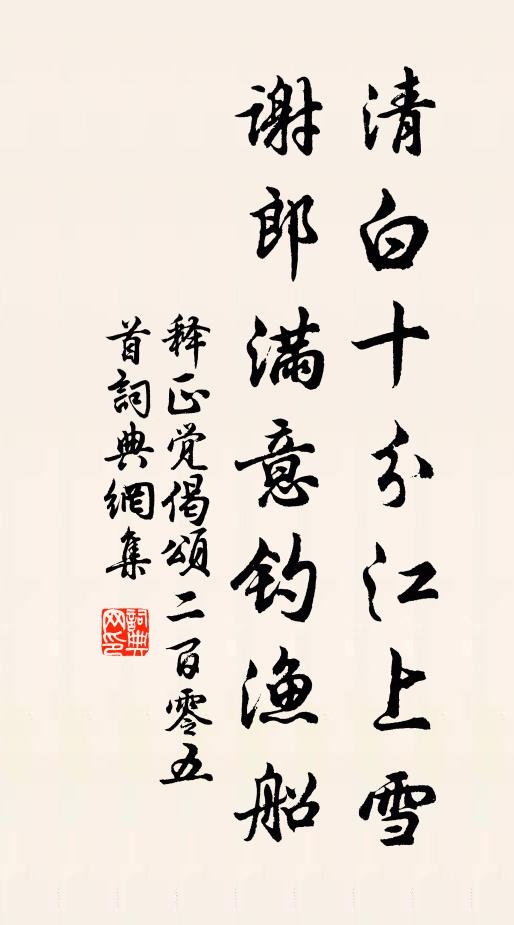 清白十分江上雪
谢郎满意钓渔船
释正觉偈颂二百零五
首词典網集
詞典網印